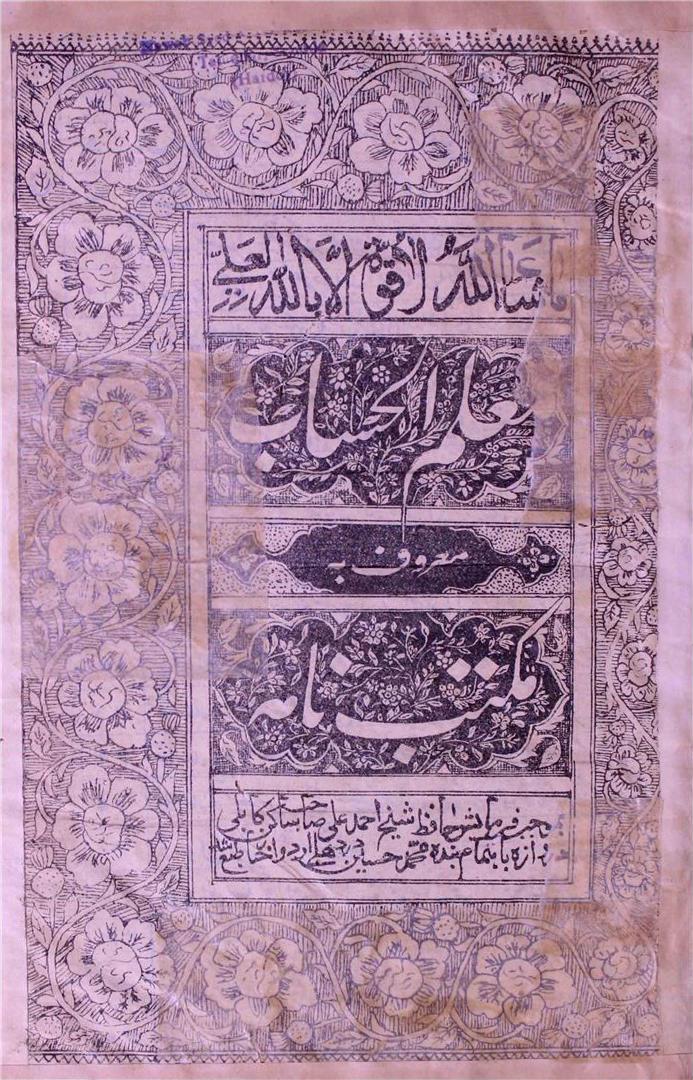 ماشاءالله لا قوة الا بالله العلی
معلم الحساب
معروف به
مکتب نامه
فرمایش حافظ شیخ احمد علی صاحب ساکن کابلی
دروازه باهتمام بنده محمد حسین در مطبع